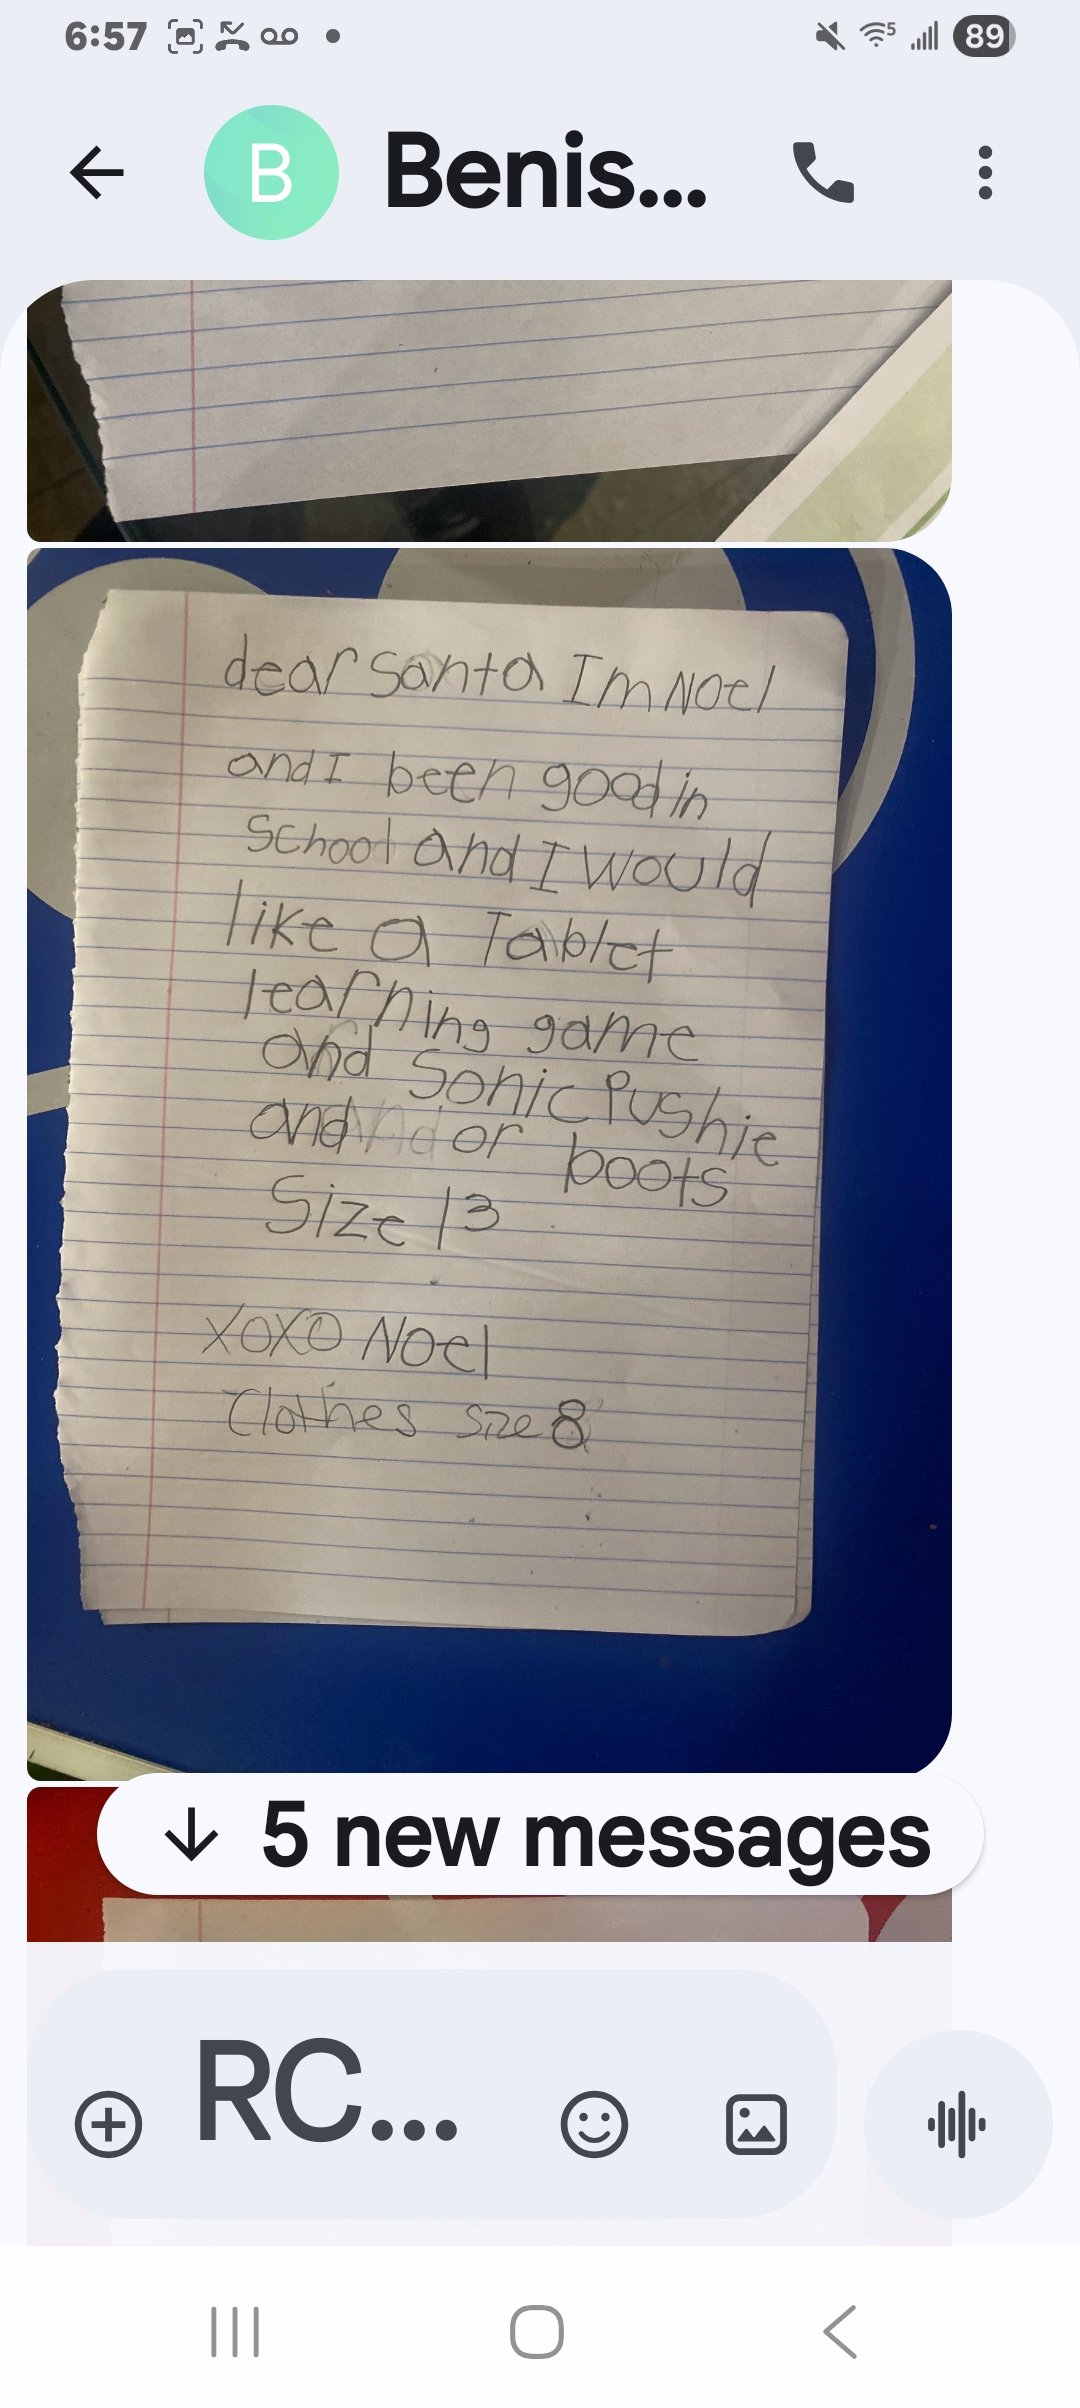 6:57
5
89
B
Benis...
dear Santa Im Noel
and I been good in
School and I would
like a Tablet
learning game
and Sonic Pushie
and and or boots
Size 13
XOXO Noel
Clothes size 8
5 new messages
RC...